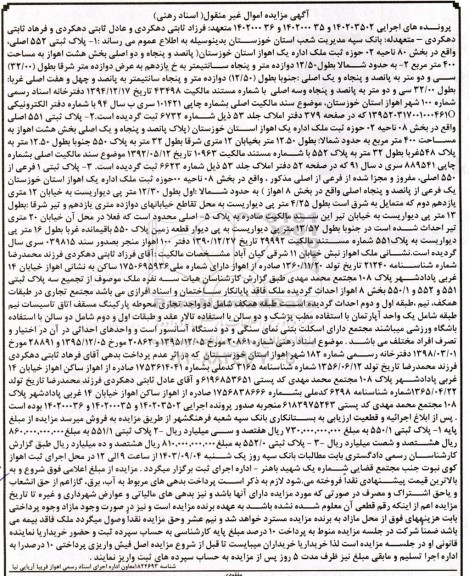 آگهی مزایده اموال غیر منقول( اسناد رهنی)
پرونده های اجرایی ۱۴۰۲۰۳۵۰۲ و ۱۴۰۲۰۰۰۳۵ و ۱۴۰۲۰۰۰۳۶ متعهد: فرزاد ثابتی دهکردی و عادل ثابتی دهکردی و فرهاد ثابتی
دهکردی – متعهدله: بانک سپه مدیریت شعب استان خوزستان بدینوسیله به اطلاع عموم می رساند :۱- پلاک ثبتی ۵۵۲ اصلی،
واقع در بخش ۸۰ ناحیه ۰۲ حوزه ثبت ملک اداره یک اهواز استان خوزستان( پانصد و پنجاه و دو اصلی بخش هشت اهواز به مساحت
۴۰۰ متر مربع ۲- به حدود شمالا بطول (۱۲/۵۰) دوازده متر و پنجاه سانتیمتر به خ یازدهم به عرض دوازده متر شرقا بطول (۳۲/۰۰)
سی و دو متر به پانصد و پنجاه و یک اصلی :جنوبا بطول (۱۲/۵۰) دوازده متر و پنجاه سانتیمتر به پانصد و چهل و هفت اصلی غربا:
بطول ۳۲/۰۰ سی و دو متر به پانصد و پنجاه وسه اصلی با شماره مستند مالکیت ۴۳۴۹۸ تاریخ ۱۳۹۴/۱۲/۱۷ دفترخانه اسناد رسمی
شماره ۱۰۰ شهر اهواز استان خوزستان، موضوع سند مالکیت اصلی بشماره چاپی ۱۰۱۴۲۱ سری ب سال ۹۴ با شماره دفتر الکترونیکی
که در صفحه ۳۷۹ دفتر املاک جلد ۵۳ ذیل شماره ۶۷۳۲ ثبت گردیده است. ۲- پلاک ثبتی ۵۵۱ اصلی
واقع در بخش ۰۸ ناحیه ۰۲ حوزه ثبت ملک اداره یک اهواز استان خوزستان (پلاک پانصد و پنجاه و یک اصلی بخش هشت اهواز به
مساحت ۴۰۰ متر مربع به حدود شمالا: بطول ۱۲.۵۰ متر بخیابان ۱۲ متری شرقا بطول ۳۲ متر به پلاک ۵۵۰ جنوبا بطول ۱۲.۵۰ متر به
پلاک ۵۴۸ غربا بطول ۳۲ متر به پلاک ۵۵۲ با شماره مستند مالکیت ۱۰۹۶۳ تاریخ ۱۳۹۲/۰۵/۱۲ موضوع سند مالکیت اصلی بشماره
چاپی ۸۸۹۵۴۱ سری د سال ۹۱ که در صفحه ۵۲ دفتر املاک جلد ۵۳ ذیل شماره ۶۴۲۳ ثبت گردیده است. ۳- پلاک ثبتی ۱ فرعی از
۵۵۰ اصلی، مفروز و مجزا شده از فرعی از اصلی مذکور ، واقع در بخش ۰۸ ناحیه ۰۰ حوزه ثبت ملک اداره یک اهواز استان خوزستان
یک فرعی از پانصد و پنجاه اصلی واقع در بخش ۸ اهواز ) به حدود شمالا :اول بطول ۱۲/۳۰ متر پی دیواریست به خیابان ۱۲ متری
یازدهم دوم که متمایل به شرق است بطول ۴/۲۵ متر پی دیواریست به محل تقاطع خیابانهای دوازده متری یازدهم و تیر شرقا :بطول
۱۳ متر پی دیواریست به خیابان تیر این سند مالکیت صادره پلاک ۵- اصلی محدود است که فعلا در محل آن خیابان ۲۰ متری
تیر احداث شده است در جنوبا بطول ۱۳/۵۷ متر پی دیواریست به پی دیوار قطعه زمین پلاک ۵۵۰ باقیمانده غربا بطول ۱۶ متر پی
دیواریست به پلاک ۵۵۱ شماره مستند مالکیت ۲۹۹۹۲ تاریخ ۱۳۹۰/۱۲/۲۷ دفتر ۱۰۰ اهواز منجر بصدور سند ۰۳۹۸۱۵ سری سال
گردیده است. نشانی ملک اهواز نبش خیابان ۱۱ شرقی کیان آباد مشخصات مالکیت :آقای فرزاد ثابتی دهکردی فرزند محمدرضا
شماره شناسنامه ۲۱۲۴۰ تاریخ تولد ۱۳۶۰/۱۱/۲۰ صادره از اهواز دارای شماره ملی ۱۷۵۰۶۹۵۹۳۶ ساکن به نشانی اهواز خیابان ۱۴
غربی پادادشهر پلاک ۱۰۸ مجتمع محمد مهدی طبق گزارش کارشناسان هیات سه نفره ملک موصوف از تجمیع سه پلاک ثبتی
۵۵۱ و ۵۵۲ و ۵۵۰/۱ بخش ۸ اهواز احداث گردیده ملک فاقد پایانکار ساختمان و اسناد افرازی می باشد مجتمع تجاری در طبقات
همکف، نیم ،طبقه اول و دوم احداث گردیده است طبقه همکف شامل دو واحد تجاری محوطه پارکینگ مسقف اتاق تاسیسات نیم
طبقه شامل یک واحد آپارتمان با استفاده مطب پزشک و دو سالن با استفاده تالار عقد و طبقات اول و دوم شامل دو سالن با استفاده
باشگاه ورزشی میباشند مجتمع دارای اسکلت بتنی نمای سنگی و دو دستگاه آسانسور است و واحدهای احداثی در آن در اختیار و
تصرف افراد مختلف می باشند . موضوع اسناد رهنی شماره ۲۰۸۶۱ مورخ ۱۳۹۵/۱۲/۰۵ و ۲۰۸۶۲ مورخ ۱۳۹۵/۱۲/۰۵ و ۲۸۸۹۱ مورخ
۱۳۹۸/۰۳/۰۱ دفترخانه رسمی شماره ۱۸۲ شهر اهواز استان خوزستان که بر اثر عدم پرداخت بدهی آقای فرهاد ثابتی دهکردی
فرزند محمدرضا تاریخ تولد ۱۳۵۶/۰۶/۱۲ شماره شناسنامه ۳۱۶۵ کدملی بشماره ۱۷۵۳۶۱۴۰۴۱ صادره از اهواز ساکن اهواز خیابان ۱۴
غربی پادادشهر پلاک ۱۰۸ مجتمع محمد مهدی کد پستی ۶۱۹۶۸۵۳۶۵۱ و آقای عادل ثابتی دهکردی فرزند محمدرضا تاریخ تولد
۱۳۵۵/۰۴/۲۲ شماره شناسنامه ۶۲۹۸ کدملی بشماره ۱۷۵۶۸۳۸۶۶۶ صادره از اهواز ساکن اهواز خیابان ۱۴ غربی پادادشهر پلاک
۱۰۸ مجتمع محمد مهدی کد پستی ۶۱۸۳۹۷۵۳۴۳ منجربه صدور پرونده اجرایی ۱۴۰۲۰۳۵۰۲ و ۱۴۰۲۰۰۰۳۵ و ۱۴۰۲۰۰۰۳۶ بوده است
. پس از ابلاغ اجرائیه و قطعیت ارزیابی به بستانکاری بانک سپه شعبه فرهنگشهر از طریق مزایده به فروش میرسد مزایده از مبلغ
پایه ۱- پلاک ثبتی ۵۵۰/۱ به مبلغ ۷۳۰,۰۰۰,۰۰۰,۰۰۰ ریال هفتصد و سی میلیارد ریال، ۲- پلاک ثبتی ۵۵۱/۱ به مبلغ ۸۶۰,۰۰۰,۰۰۰,۰۰۰
ریال هشتصد و شصت میلیارد ریال ۳- پلاک ثبتی ۵۵۲/۰ به مبلغ ۸۱۰,۰۰۰,۰۰۰,۰۰۰ ریال هشتصد و ده میلیارد ریال طبق گزارش
کارشناسان رسمی دادگستری بابت مطالبات بانک سپه روز یک شنبه ۱۴۰۳/۰۹/۰۴ از ساعت ۹ الی ۱۲ در محل اجرای ثبت اهواز
کوی نبوت جنب مجتمع قضایی شماره یک شهید باهنر - اداره اجرای ثبت برگزار میگردد . مزایده از مبلغ اعلامی فوق شروع و به
بالاترین قیمت پیشنهادی نقدا فروخته می.شود لازم به ذکر است پرداخت بدهی های مربوط به آب، برق، گاز اعم از حق انشعاب
و یاحق اشتراک و مصرف در صورتی که مورد مزایده دارای آنها باشد و نیز بدهی های مالیاتی و عوارض شهرداری و غیره تا تاریخ
مزایده اعم از اینکه رقم قطعی آن معلوم شده یا نشده باشد به عهده برنده مزایده است و نیز در صورت وجود مازاد وجوه پرداختی
بابت هزینههای فوق از محل مازاد به برنده مزایده مسترد خواهد شد و نیم عشر وحق مزایده نقدا وصول میگردد ملک فاقد بیمه می
باشد ضمنا شرکت در جلسه مزایده منوط به پرداخت ۱۰ درصد مبلغ پایه کارشناسی به حساب سپرده ثبت و حضور خریداریا نماینده
قانونی او در جلسه مزایده است لذا خریداریا خریداران میبایست تا قبل از شروع مزایده اصل فیش واریزی پرداختی ۱۰ درصدرا به
اداره اجرا تسلیم و مابقی مبلغ نیز ظرف مدت ۵ روز پس از مزایده به حساب سپرده های ثبت واریز نماید .
شناسه ۱۸۲۲۶۹۳ معاون اداره اجرای اسناد رسمی اهواز فریبا آریایی نیا